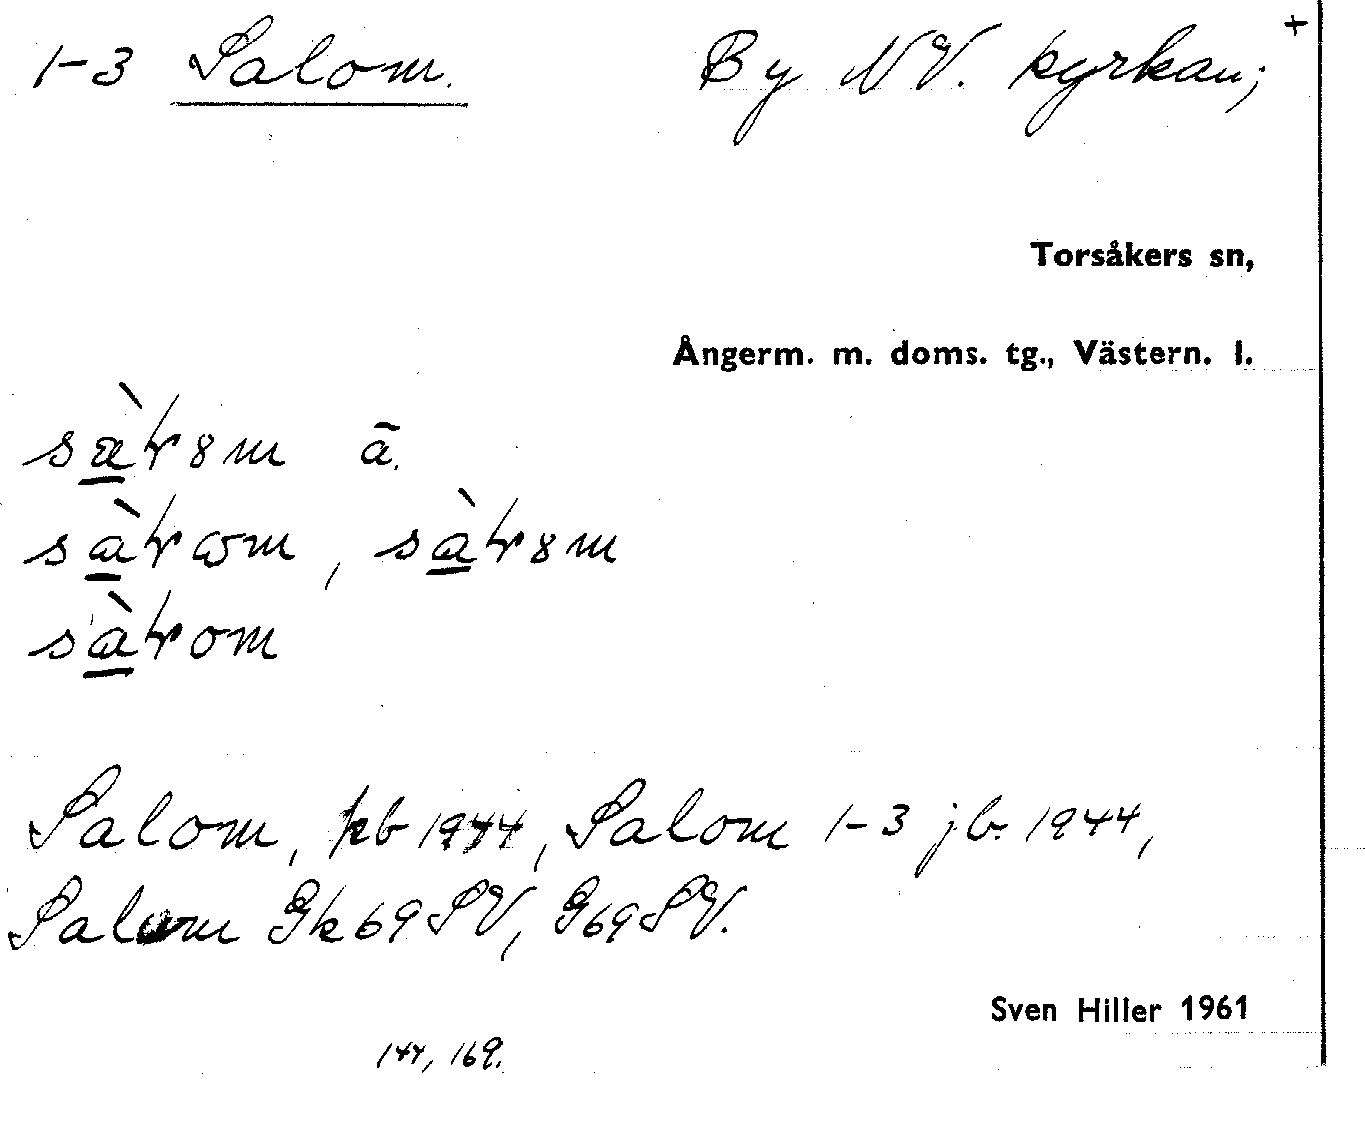 1-3 Salom. By NV. kyrkan; +
Torsåkers sn,
Ångerm. m. doms. tg., Västern. l.
ā.
Salom, kb 1944, Salom 1-3 jb. 1944,
Salom Gk69SV, G69SV.
Sven Hiller 1961
144, 169.